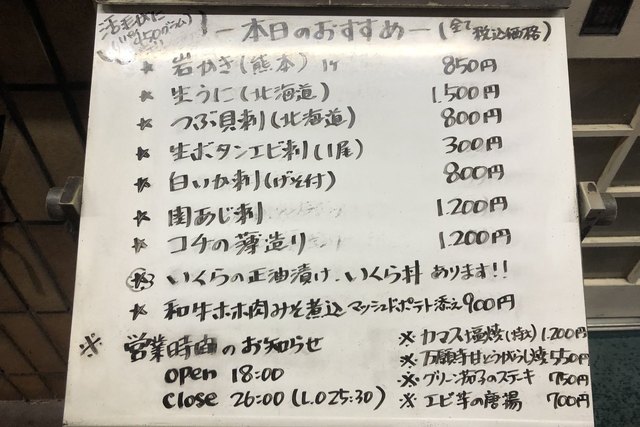 活毛がに
450グラム)
ー本日のおすすめー (全て税込価格)
☆ 岩がき(熊本) 1ケ 850円
☆ 生うに(北海道) 1.500円
☆ つぶ貝刺(北海道) 800円
☆ 生ボタンエビ刺(1尾) 300円
☆ 白いか刺(げそ付) 800円
☆ 関あじ刺 1.200円
☆ コチの薄造り 1.200円
☆ いくらの正油漬け.いくら丼 あります!!
☆ 和牛ホホ肉みそ煮込マッシュドポテト添え 900円
※ 営業時間のお知らせ
open 18:00
close 26:00 (L.O25:30)
※ カマス塩焼(特大) 1.200円
※ 万願寺甘とうがらし焼 550円
※ グリーン茄子のステーキ 750円
※ エビ芋の唐揚 700円